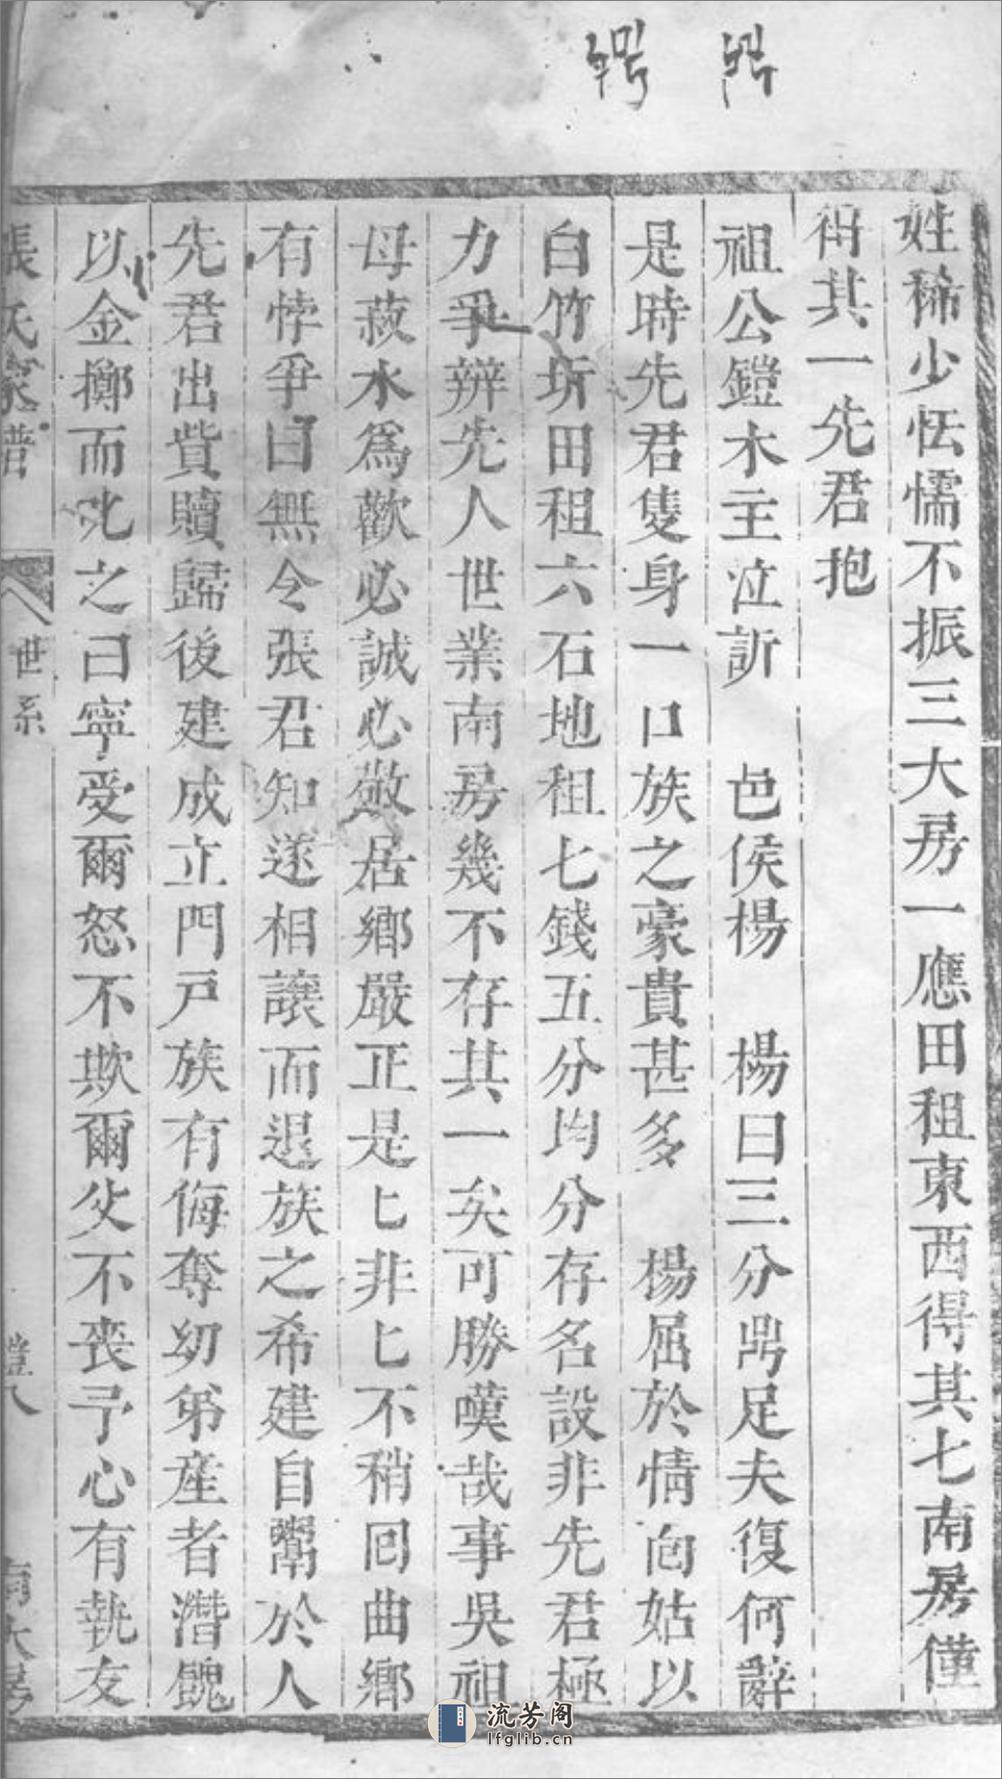 姓稀少怯懦不振三大房一應田租東西得其七南房僅
得其一先君抱
祖公鎧木主泣訢 邑侯楊 楊曰三分鼎足夫復何辭
是時先君隻身一口族之豪貴甚多 楊屈於情面姑以
白竹坵田租六石地租七錢五分均分存名設非先君極
力爭辯先人世業南房幾不存其一矣可勝嘆哉事吳祖
母菽水為歡必誠必敬居鄉嚴正是匕非匕不稍囘曲鄉
有悖爭曰無令張君知遂相讓而退族之希建自鬻於人
先君出貲贖歸後建成立門戸族有侮奪幼弟産者潛餽
以金擲而叱之曰寧受爾怒不欺爾父不喪予心有執友
張氏家譜 世系 鎧公 南大房
流芳阁
lfglib.cn